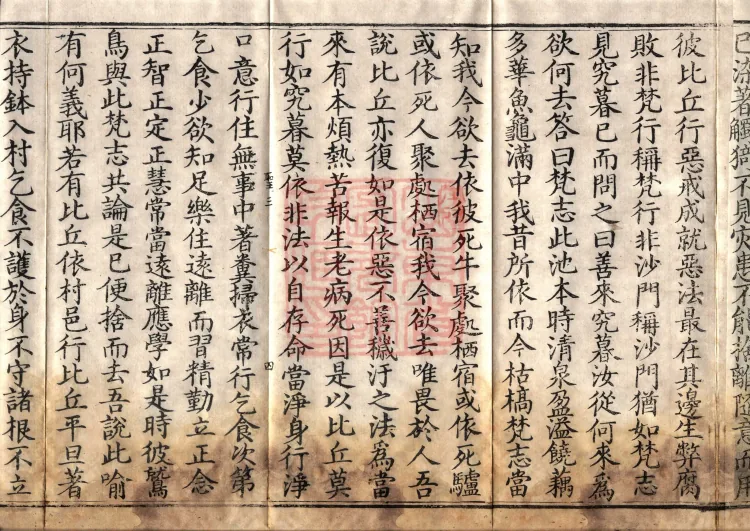 已染著觸猗不見亦患不能捨離隨意而用
彼比丘行惡戒成就惡法最在其邊生弊腐
敗非梵行稱梵行非沙門稱沙門猶如梵志
見究暮已而問之曰善來究暮汝從何來爲
欲何去答曰梵志此池本時清泉盈溢饒藕
多華魚龜滿中我昔所依而今枯槁梵志當
知我今欲去依彼死牛聚處栖宿或依死驢
或依死人聚處栖宿我今欲去唯畏於人吾
說比丘亦復如是依惡不善穢汙之法爲當
來有本煩熱苦報生老病死因是以比丘莫
行如究暮莫依非法以自存命當淨身行淨
口意行住無事中著糞掃衣常行乞食次第
乞食少欲知足樂住遠離而習精勤立正念
正智正定正慧常當遠離應學如是時彼鷲
鳥與此梵志共論是已便捨而去吾說此喻
有何義耶若有比丘依村邑行比丘平旦著
衣持鉢入村乞食不護於身不守諸根不立
四